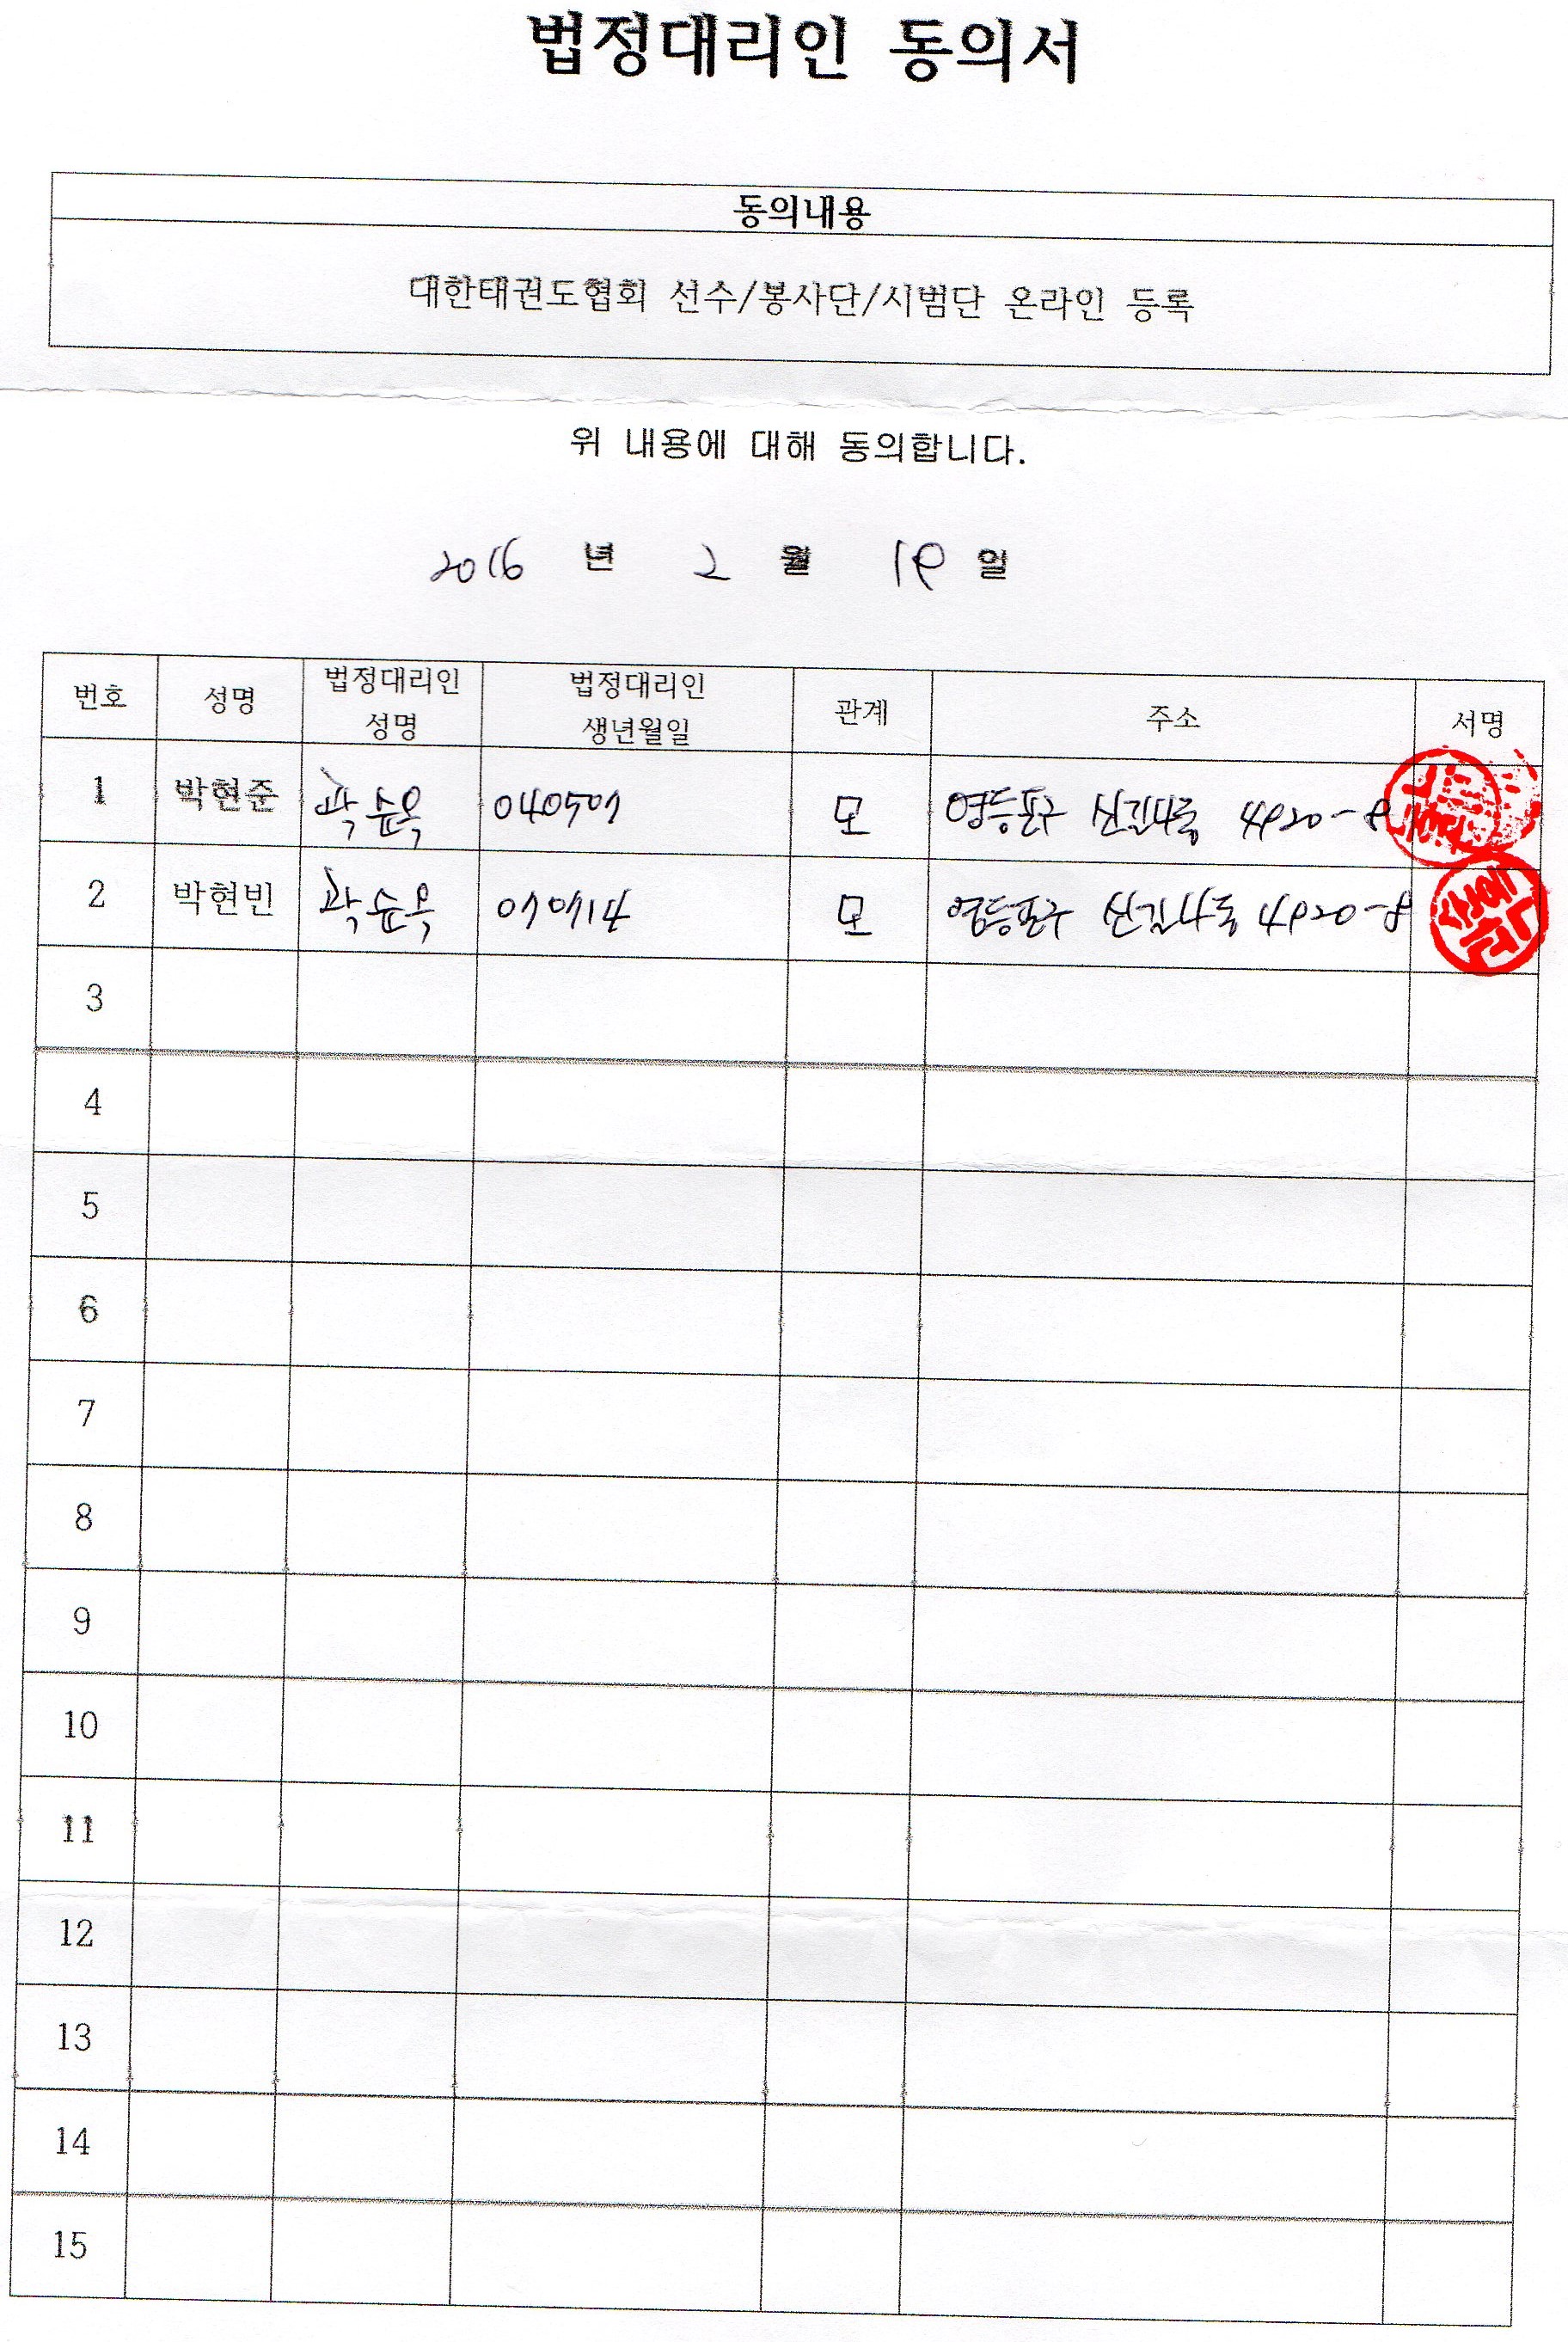 법정대리인 동의서
동의내용
대한태권도협회 선수/봉사단/시범단 온라인 등록
위 내용에 대해 동의합니다.
2016 년 2 월 19 일
번호 성명 법정대리인 성명 법정대리인 생년월일 관계 주소 서명
1 박현준 곽순옥 040507 모 영등포구 신길4동 4920-8
2 박현빈 곽순옥 070714 모 영등포구 신길4동 4920-8
3
4
5
6
7
8
9
10
11
12
13
14
15